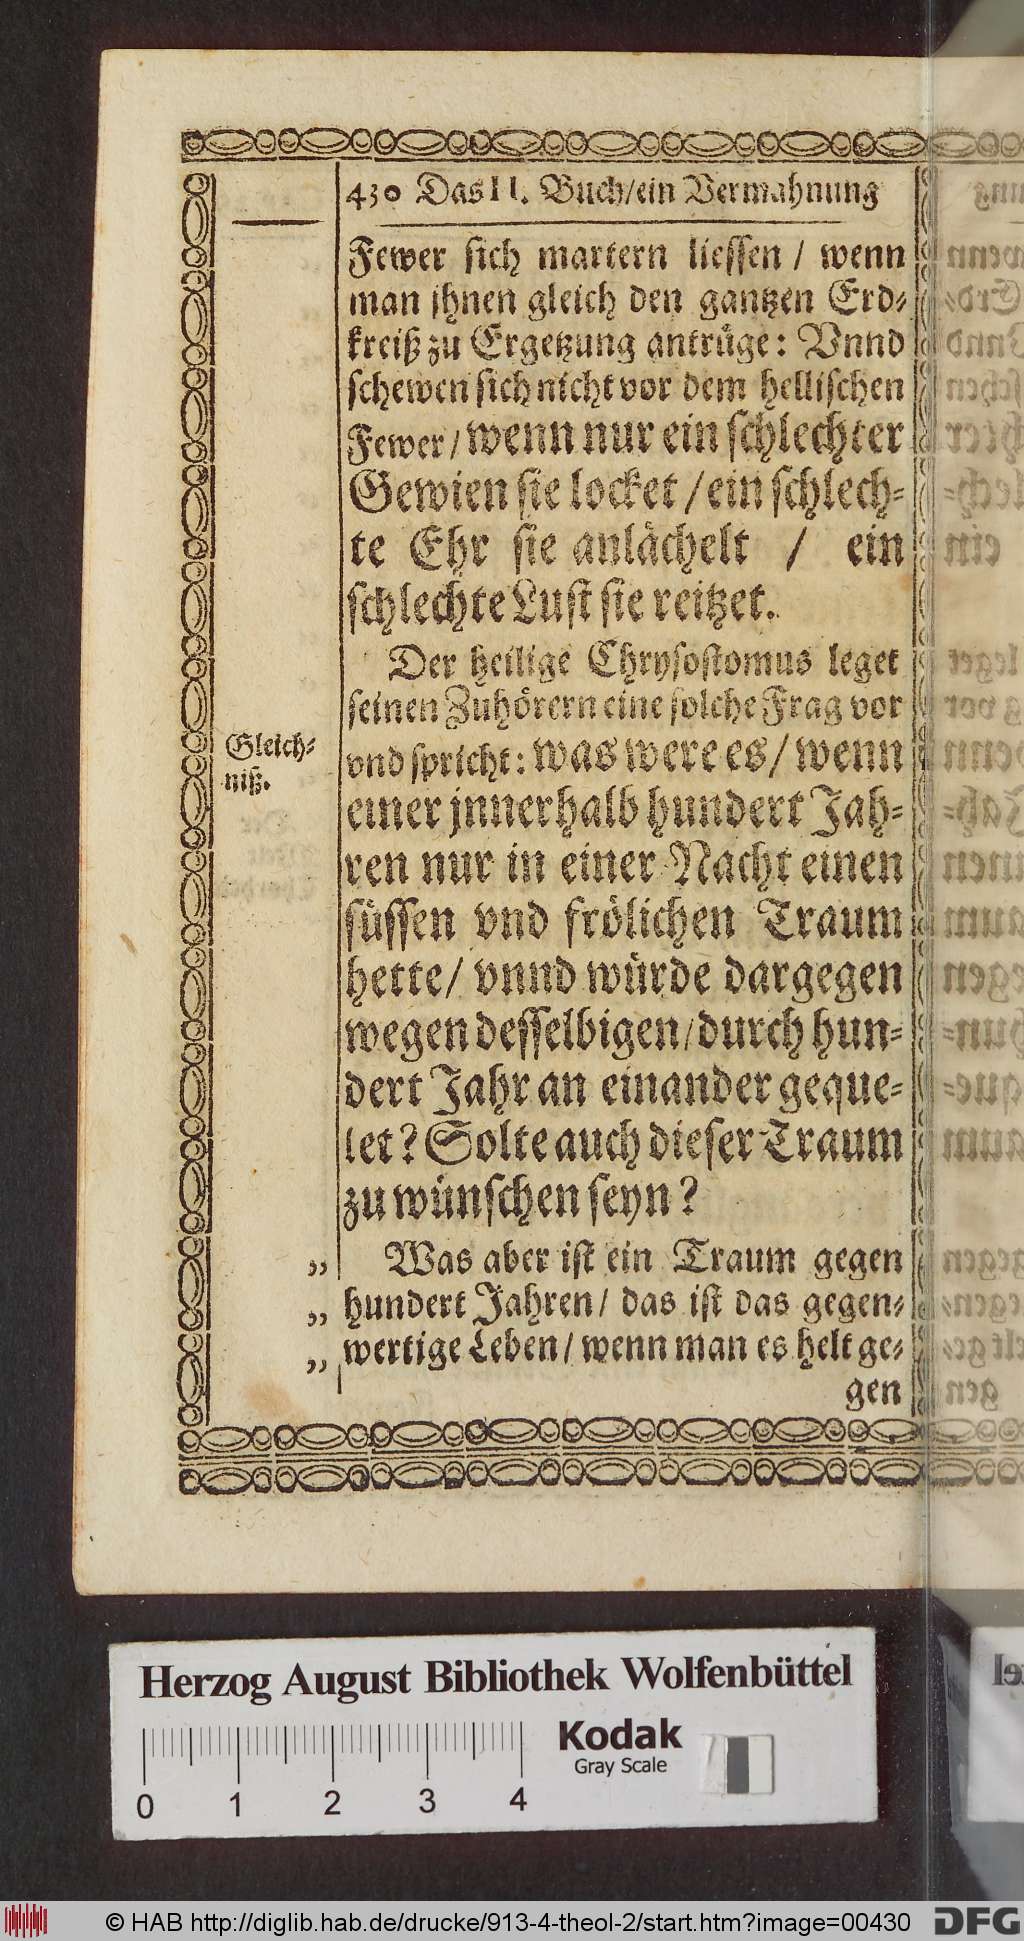 430 Das II. Buch/ein Vermahnung
Fewer sich martern liessen / wenn
man jhnen gleich den gantzen Erd-
kreiß zu Ergetzung antrüge: Vnnd
schewen sich nicht vor dem hellischen
Fewer/wenn nur ein schlechter
Gewien sie locket/ein schlech-
te Ehr sie anlächelt / ein
schlechte Lust sie reitzet.
Der heilige Chrysostomus leget
seinen Zuhörern eine solche Frag vor
Gleich-
niß.
vnd spricht: was were es/ wenn
einer jnnerhalb hundert Jah-
ren nur in einer Nacht einen
süssen vnd frölichen Traum
hette/ vnnd würde dargegen
wegen desselbigen/durch hun-
dert Jahr an einander geque-
let? Solte auch dieser Traum
zu wünschen seyn?
„ Was aber ist ein Traum gegen
„ hundert Jahren/ das ist das gegen-
„ wertige Leben/ wenn man es helt ge-
gen
Herzog August Bibliothek Wolfenbüttel
Kodak
Gray Scale
0 1 2 3 4
© HAB http://diglib.hab.de/drucke/913-4-theol-2/start.htm?image=00430
DFG